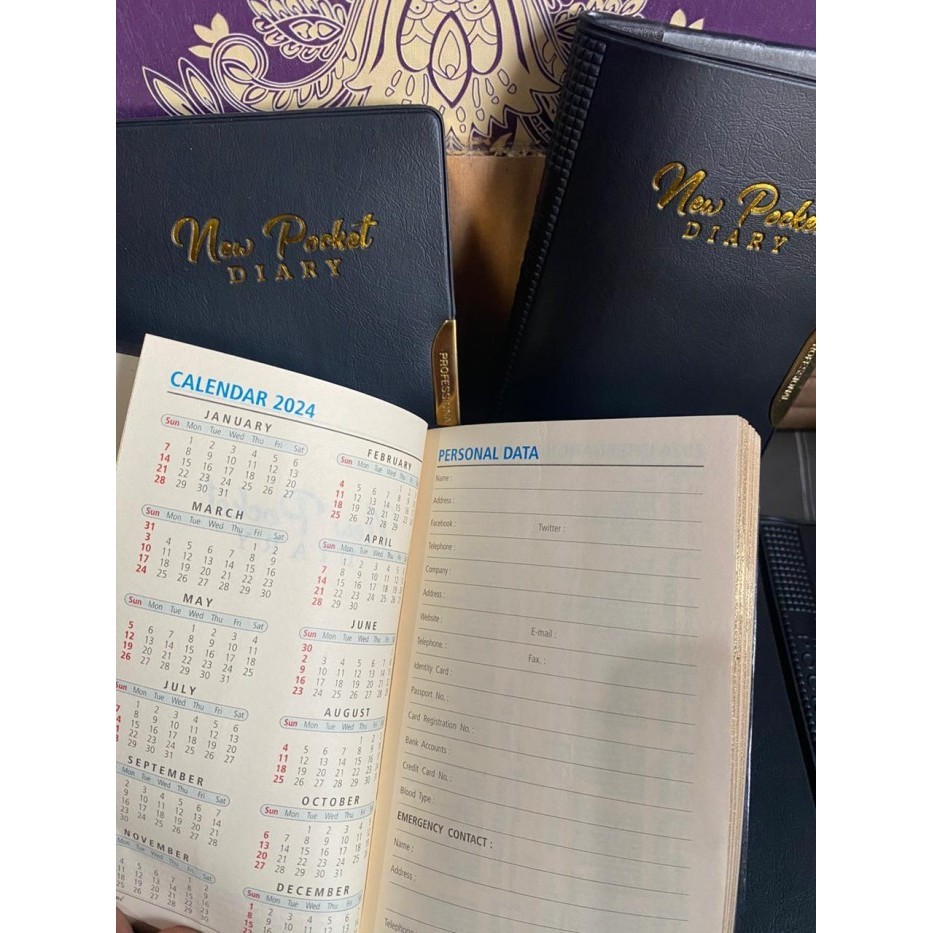 New Pocket
DIARY
New Pocke
DIARY
PROFESSION
PROFESSION
CALENDAR 2024
JANUARY
Sun Mon Tue Wed Thu Fri Sat
1 2 3 4 5 6
7 8 9 10 11 12 13
14 15 16 17 18 19 20
21 22 23 24 25 26 27
28 29 30 31
FEBRUARY
Sun Mon Tue Wed Thu
1 2
4 5 6 7 8 9
11 12 13 14 15 16
18 19 20 21 22 23
25 26 27 28 29
MARCH
Sun Mon Tue Wed Thu Fri Sat
31 1 2
3 4 5 6 7 8 9
10 11 12 13 14 15 16
17 18 19 20 21 22 23
24 25 26 27 28 29 30
APRIL
Sun Mon Tue Wed Thu Fri
1 2 3 4 5
7 8 9 10 11 12
14 15 16 17 18 19
21 22 23 24 25 26
28 29 30
MAY
Sun Mon Tue Wed Thu Fri Sat
1 2 3 4
5 6 7 8 9 10 11
12 13 14 15 16 17 18
19 20 21 22 23 24 25
26 27 28 29 30 31
JUNE
Sun Mon Tue Wed Thu Fri
30
2 3 4 5 6 7
9 10 11 12 13 14
16 17 18 19 20 21
23 24 25 26 27 28
JULY
Sun Mon Tue Wed Thu Fri Sat
1 2 3 4 5 6
7 8 9 10 11 12 13
15 16 17 18 19 20
22 23 24 25 26 27
29 30 31
AUGUST
Sun Mon Tue Wed Thu Fri
1 2
4 5 6 7 8 9
11 12 13 14 15 16
18 19 20 21 22 23
25 26 27 28 29 30
SEPTEMBER
Mon Tue Wed Thu Fri Sat
2 3 4 5 6 7
9 10 11 12 13 14
16 17 18 19 20 21
23 24 25 26 27 28
30
OCTOBER
Sun Mon Tue Wed Thu Fri
1 2 3 4
6 7 8 9 10 11
13 14 15 16 17 18
20 21 22 23 24 25
27 28 29 30 31
NOVEMBER
Mon Tue Wed Thu Fri Sat
1 2
4 5 6 7 8 9
11 12 13 14 15 16
18 19 20 21 22 23
25 26 27 28 29 30
DECEMBER
Sun Mon Tue Wed Thu Fri
1 2 3 4 5 6
8 9 10 11 12 13
PERSONAL DATA
Name :
Address :
Facebook : Twitter :
Telephone :
Company :
Address :
Website :
E-mail :
Telephone. : Fax. :
Identity Card :
Passport No. :
Card Registration No. :
Bank Accounts :
Credit Card No. :
Blood Type :
EMERGENCY CONTACT :
Name :
Address :
Telephone